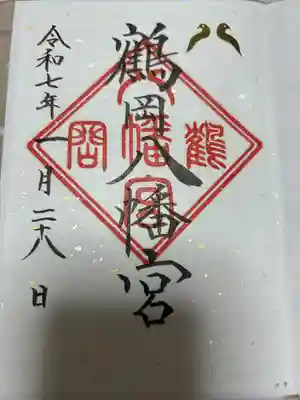 鶴岡八幡宮
令和七年一月二十八日
鶴
岡
八幡宮